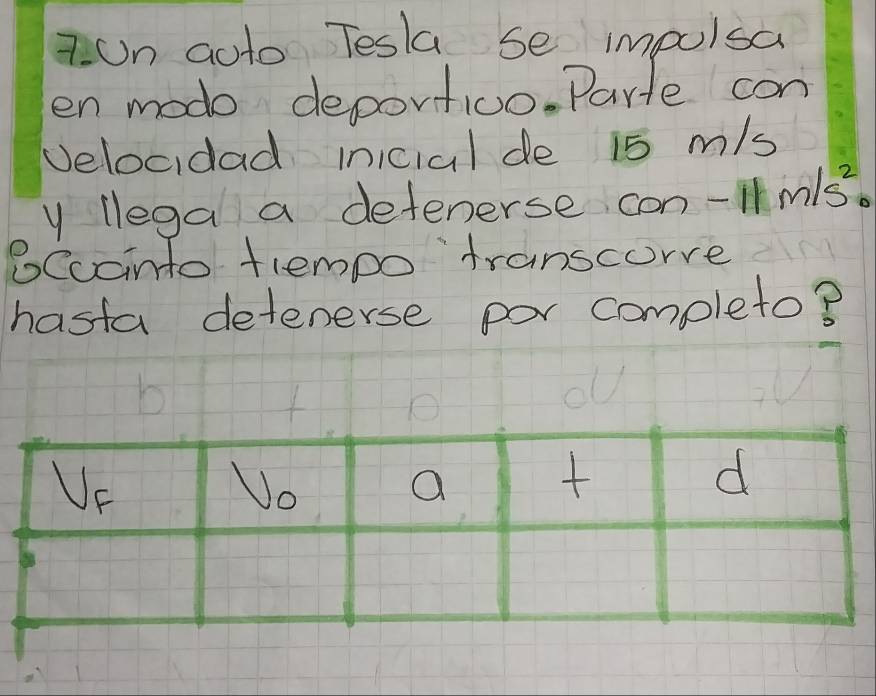 7. Un auto Tesla se impulsa
en modo deportivo. Parte con
velocidad inicial de 15 m/s
y llega a detenerse con -11 m/s².
¿Cuánto tiempo transcurre
hasta detenerse por completo?
VF Vo a t d